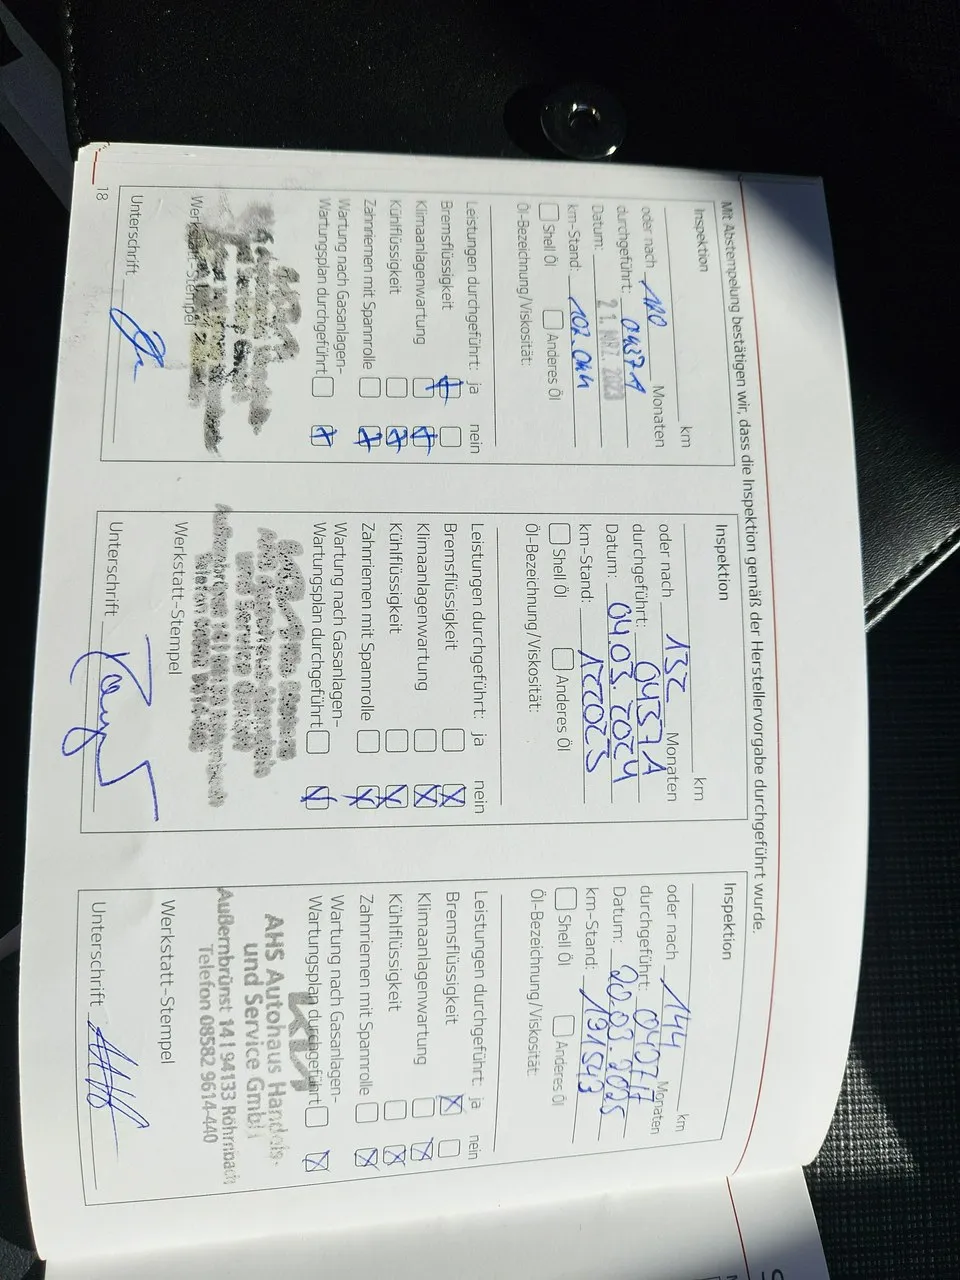 Mit Abstempelung bestätigen wir, dass die Inspektion gemäß der Herstellervorgabe durchgeführt wurde.
Inspektion
km
oder nach 120 Monaten
durchgeführt: 0437A
Datum: 21. MRZ. 2023
km-Stand: 102.044
Shell Öl Anderes Öl
Öl-Bezeichnung/Viskosität:
Leistungen durchgeführt: ja nein
Bremsflüssigkeit
Klimaanlagenwartung
Kühlflüssigkeit
Zahnriemen mit Spannrolle
Wartung nach Gasanlagen-
Wartungsplan durchgeführt
Werkstatt-Stempel
Unterschrift
18
Inspektion
km
oder nach 132 Monaten
durchgeführt: 0437A
Datum: 04.03.2024
km-Stand: 177025
Shell Öl Anderes Öl
Öl-Bezeichnung/Viskosität:
Leistungen durchgeführt: ja nein
Bremsflüssigkeit
Klimaanlagenwartung
Kühlflüssigkeit
Zahnriemen mit Spannrolle
Wartung nach Gasanlagen-
Wartungsplan durchgeführt
Werkstatt-Stempel
Unterschrift
Inspektion
km
oder nach 144 Monaten
durchgeführt:
Datum: 20.03.2025
km-Stand: 191543
Shell Öl Anderes Öl
Öl-Bezeichnung/Viskosität:
Leistungen durchgeführt: ja nein
Bremsflüssigkeit
Klimaanlagenwartung
Kühlflüssigkeit
Zahnriemen mit Spannrolle
Wartung nach Gasanlagen-
Wartungsplan durchgeführt
KIA
AHS Autohaus Handels-
und Service GmbH
Außernbrünst 14 | 94133 Röhrnbach
Telefon 08582 9614-440
Werkstatt-Stempel
Unterschrift